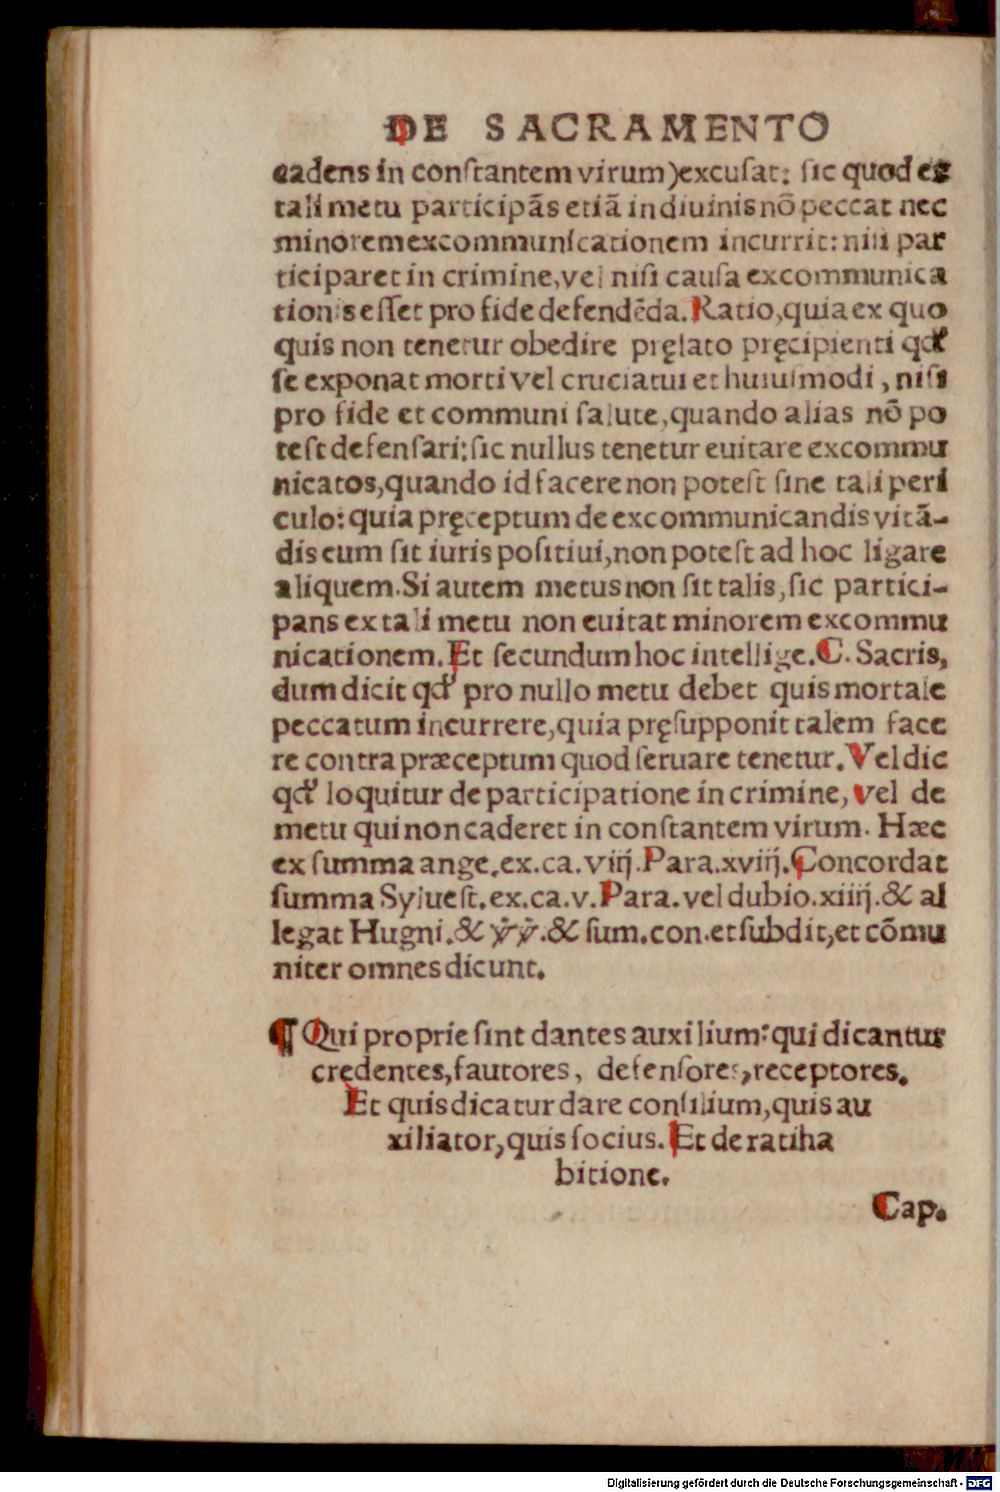 DE SACRAMENTO
cadens in conſtantem virum) excuſat: ſic quod ex
tali metu participãs etiã in diuinis nõ peccat nec
minorem excommunicationem incurrit: niſi par
ticiparet in crimine, vel niſi cauſa excommunica
tionis eſſet pro fide defendẽda. Ratio, quia ex quo
quis non tenetur obedire pręlato pręcipienti qd̛
ſe exponat morti vel cruciatui et huiuſmodi, niſi
pro fide et communi ſalute, quando alias nõ po
teſt defenſari: ſic nullus tenetur euitare excommu
nicatos, quando id facere non poteſt ſine tali peri
culo: quia pręceptum de excommunicandis vitã-
dis cum ſit iuris poſitiui, non poteſt ad hoc ligare
aliquem. Si autem metus non ſit talis, ſic partici-
pans ex tali metu non euitat minorem excommu
nicationem. Et ſecundum hoc intellige. C. Sacris,
dum dicit qd̛ pro nullo metu debet quis mortale
peccatum incurrere, quia pręſupponit talem face
re contra præceptum quod ſeruare tenetur. Vel dic
qd̛ loquitur de participatione in crimine, vel de
metu qui non caderet in conſtantem virum. Hæc
ex ſumma ange. ex. ca. viij. Para. xviij. Concordat
ſumma Sylueſt. ex. ca. v. Para. vel dubio. xiiij. & al
legat Hugni. & . & ſum. con. et ſubdit, et cõmu
niter omnes dicunt.
¶ Qui proprie ſint dantes auxilium: qui dicantur
credentes, fautores, defenſores, receptores.
Et quis dicatur dare conſilium, quis au
xiliator, quis ſocius. Et de ratiha
bitione.
Cap.
Digitalisierung gefördert durch die Deutsche Forschungsgemeinschaft - DFG